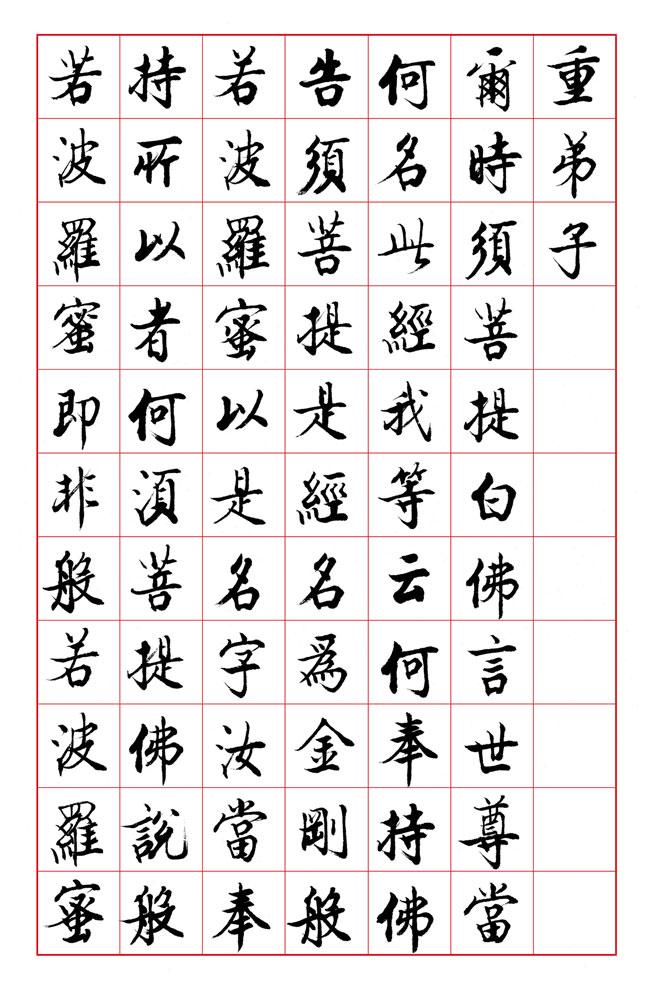 重弟子
爾時須菩提白佛言世尊當
何名此經我等云何奉持佛
告須菩提是經名為金剛般
若波羅蜜以是名字汝當奉
持所以者何須菩提佛說般
若波羅蜜即非般若波羅蜜